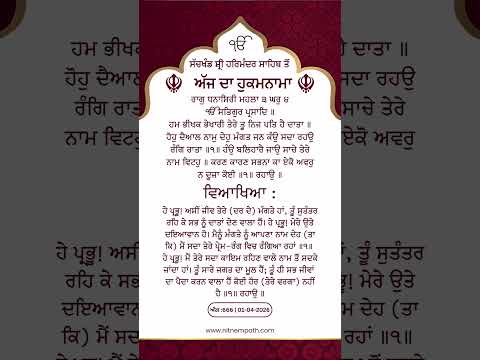 ੴ
ਸੱਚਖੰਡ ਸ੍ਰੀ ਹਰਿਮੰਦਰ ਸਾਹਿਬ ਤੋਂ
ਅੱਜ ਦਾ ਹੁਕਮਨਾਮਾ
ਰਾਗੁ ਧਨਾਸਿਰੀ ਮਹਲਾ ੩ ਘਰੁ ੪
ੴ ਸਤਿਗੁਰ ਪ੍ਰਸਾਦਿ ॥
ਹਮ ਭੀਖਕ ਭੇਖਾਰੀ ਤੇਰੇ ਤੂ ਨਿਜ ਪਤਿ ਹੈ ਦਾਤਾ ॥
ਹੋਹੁ ਦੈਆਲ ਨਾਮੁ ਦੇਹੁ ਮੰਗਤ ਜਨ ਕੰਉ ਸਦਾ ਰਹਉ
ਰੰਗਿ ਰਾਤਾ ॥੧॥ ਹੰਉ ਬਲਿਹਾਰੈ ਜਾਉ ਸਾਚੇ ਤੇਰੇ
ਨਾਮ ਵਿਟਹੁ ॥ ਕਰਣ ਕਾਰਣ ਸਭਨਾ ਕਾ ਏਕੋ ਅਵਰੁ
ਨ ਦੂਜਾ ਕੋਈ ॥੧॥ ਰਹਾਉ ॥
ਵਿਆਖਿਆ :
ਹੇ ਪ੍ਰਭੂ! ਅਸੀਂ ਜੀਵ ਤੇਰੇ (ਦਰ ਦੇ) ਮੰਗਤੇ ਹਾਂ, ਤੂੰ ਸੁਤੰਤਰ
ਰਹਿ ਕੇ ਸਭ ਨੂੰ ਦਾਤਾਂ ਦੇਣ ਵਾਲਾ ਹੈਂ। ਹੇ ਪ੍ਰਭੂ! ਮੇਰੇ ਉਤੇ
ਦਇਆਵਾਨ ਹੋ। ਮੈਨੂੰ ਮੰਗਤੇ ਨੂੰ ਆਪਣਾ ਨਾਮ ਦੇਹ (ਤਾ
ਕਿ) ਮੈਂ ਸਦਾ ਤੇਰੇ ਪ੍ਰੇਮ-ਰੰਗ ਵਿਚ ਰੰਗਿਆ ਰਹਾਂ ॥੧॥
ਹੇ ਪ੍ਰਭੂ! ਮੈਂ ਤੇਰੇ ਸਦਾ ਕਾਇਮ ਰਹਿਣ ਵਾਲੇ ਨਾਮ ਤੋਂ ਸਦਕੇ
ਜਾਂਦਾ ਹਾਂ। ਤੂੰ ਸਾਰੇ ਜਗਤ ਦਾ ਮੂਲ ਹੈਂ; ਤੂੰ ਹੀ ਸਭ ਜੀਵਾਂ
ਦਾ ਪੈਦਾ ਕਰਨ ਵਾਲਾ ਹੈਂ ਕੋਈ ਹੋਰ (ਤੇਰੇ ਵਰਗਾ) ਨਹੀਂ
ਹੈ ॥੧॥ ਰਹਾਉ ॥
ਅੰਗ :666 | 01-04-2026
www.nitnempath.com